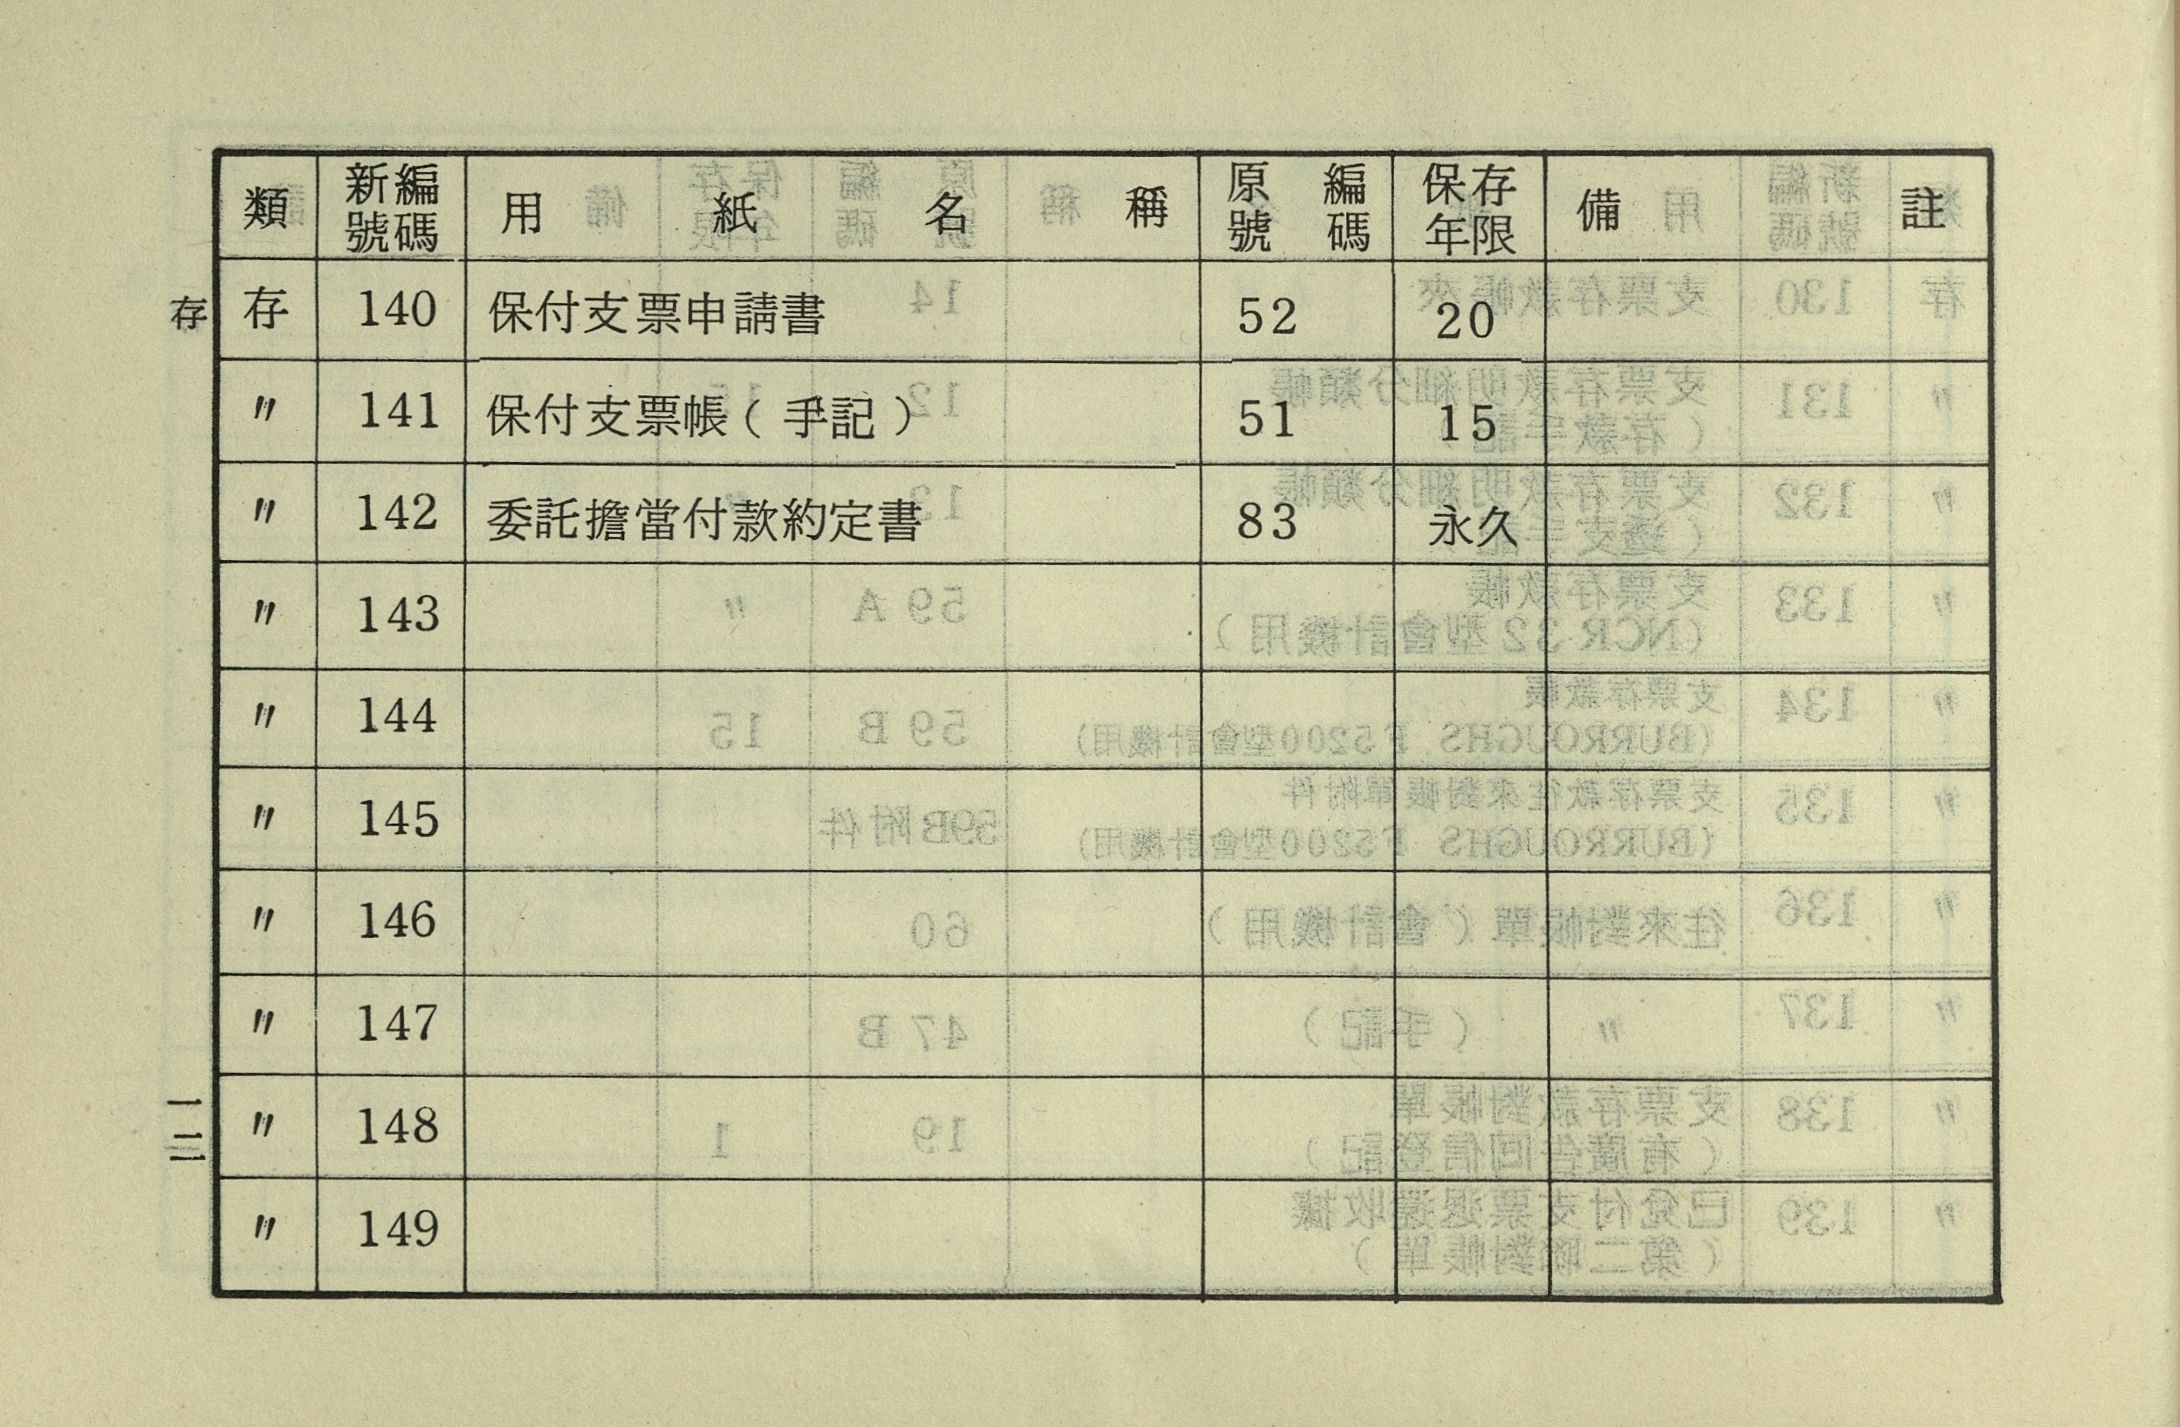 類 新編號碼 用紙名稱 原編號碼 保存年限 備註
存 140 保付支票申請書 52 20
〃 141 保付支票帳（手記） 51 15
〃 142 委託擔當付款約定書 83 永久
〃 143
〃 144
〃 145
〃 146
〃 147
〃 148
〃 149
存